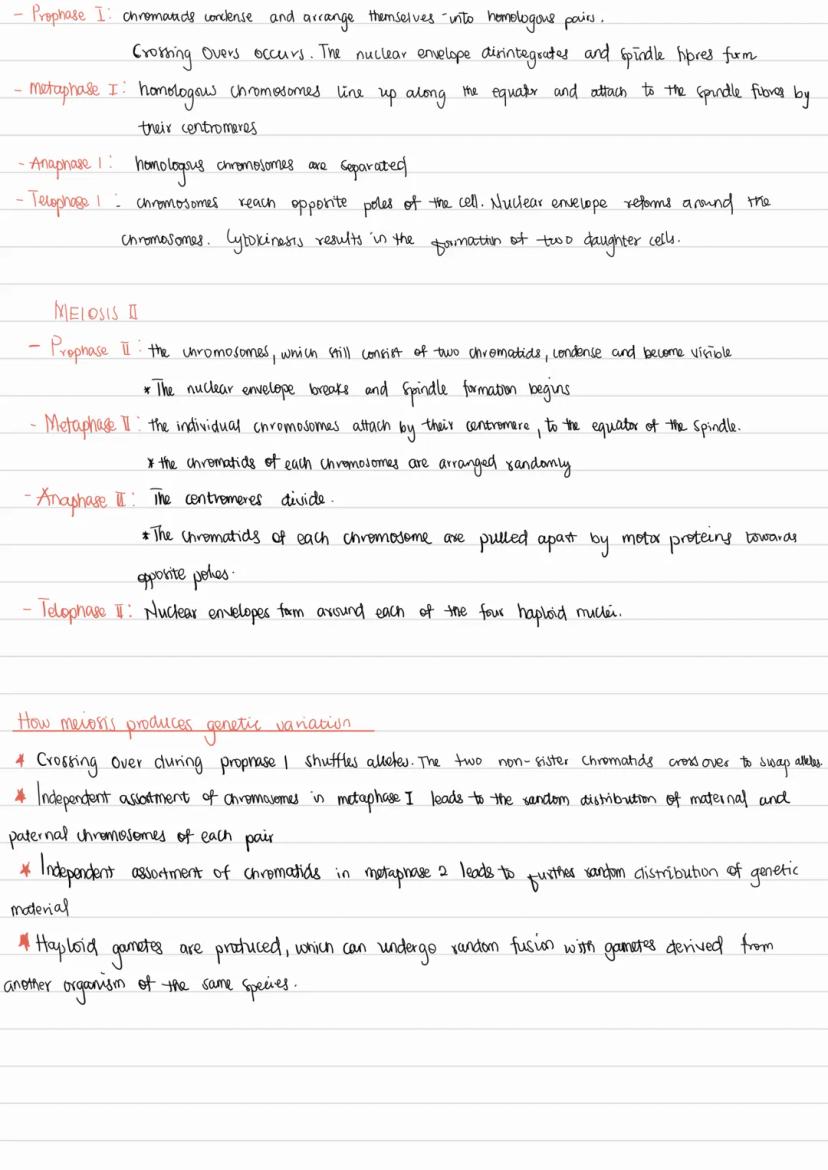 - Prophase I: chromatids condense and arrange themselves into homologous pairs.
Crossing Overs occurs. The nuclear envelope disintegrates and spindle fibres form
- Metaphase I: homologous chromosomes line up along the equator and attach to the spindle fibres by
their centromeres
- Anaphase I: homologous chromosomes are separated
- Telophase I: chromosomes reach opposite poles of the cell. Nuclear envelope reforms around the
chromosomes. Cytokinesis results in the formation of two daughter cells.
MEIOSIS II
- Prophase II: the chromosomes, which still consist of two chromatids, condense and become visible
* The nuclear envelope breaks and spindle formation begins
- Metaphase II: the individual chromosomes attach by their centromere, to the equator of the spindle.
* the chromatids of each chromosomes are arranged randomly
- Anaphase II: The centromeres divide.
* The chromatids of each chromosome are pulled apart by motor proteins towards
opposite poles.
- Telophase II: Nuclear envelopes form around each of the four haploid nuclei.
How meiosis produces genetic variation
* Crossing over during prophase 1 shuffles alleles. The two non-sister chromatids cross over to swap alleles.
* Independent assortment of chromosomes in metaphase I leads to the random distribution of maternal and
paternal chromosomes of each pair
* Independent assortment of chromatids in metaphase 2 leads to further random distribution of genetic
material
* Haploid gametes are produced, which can undergo random fusion with gametes derived from
another organism of the same species.